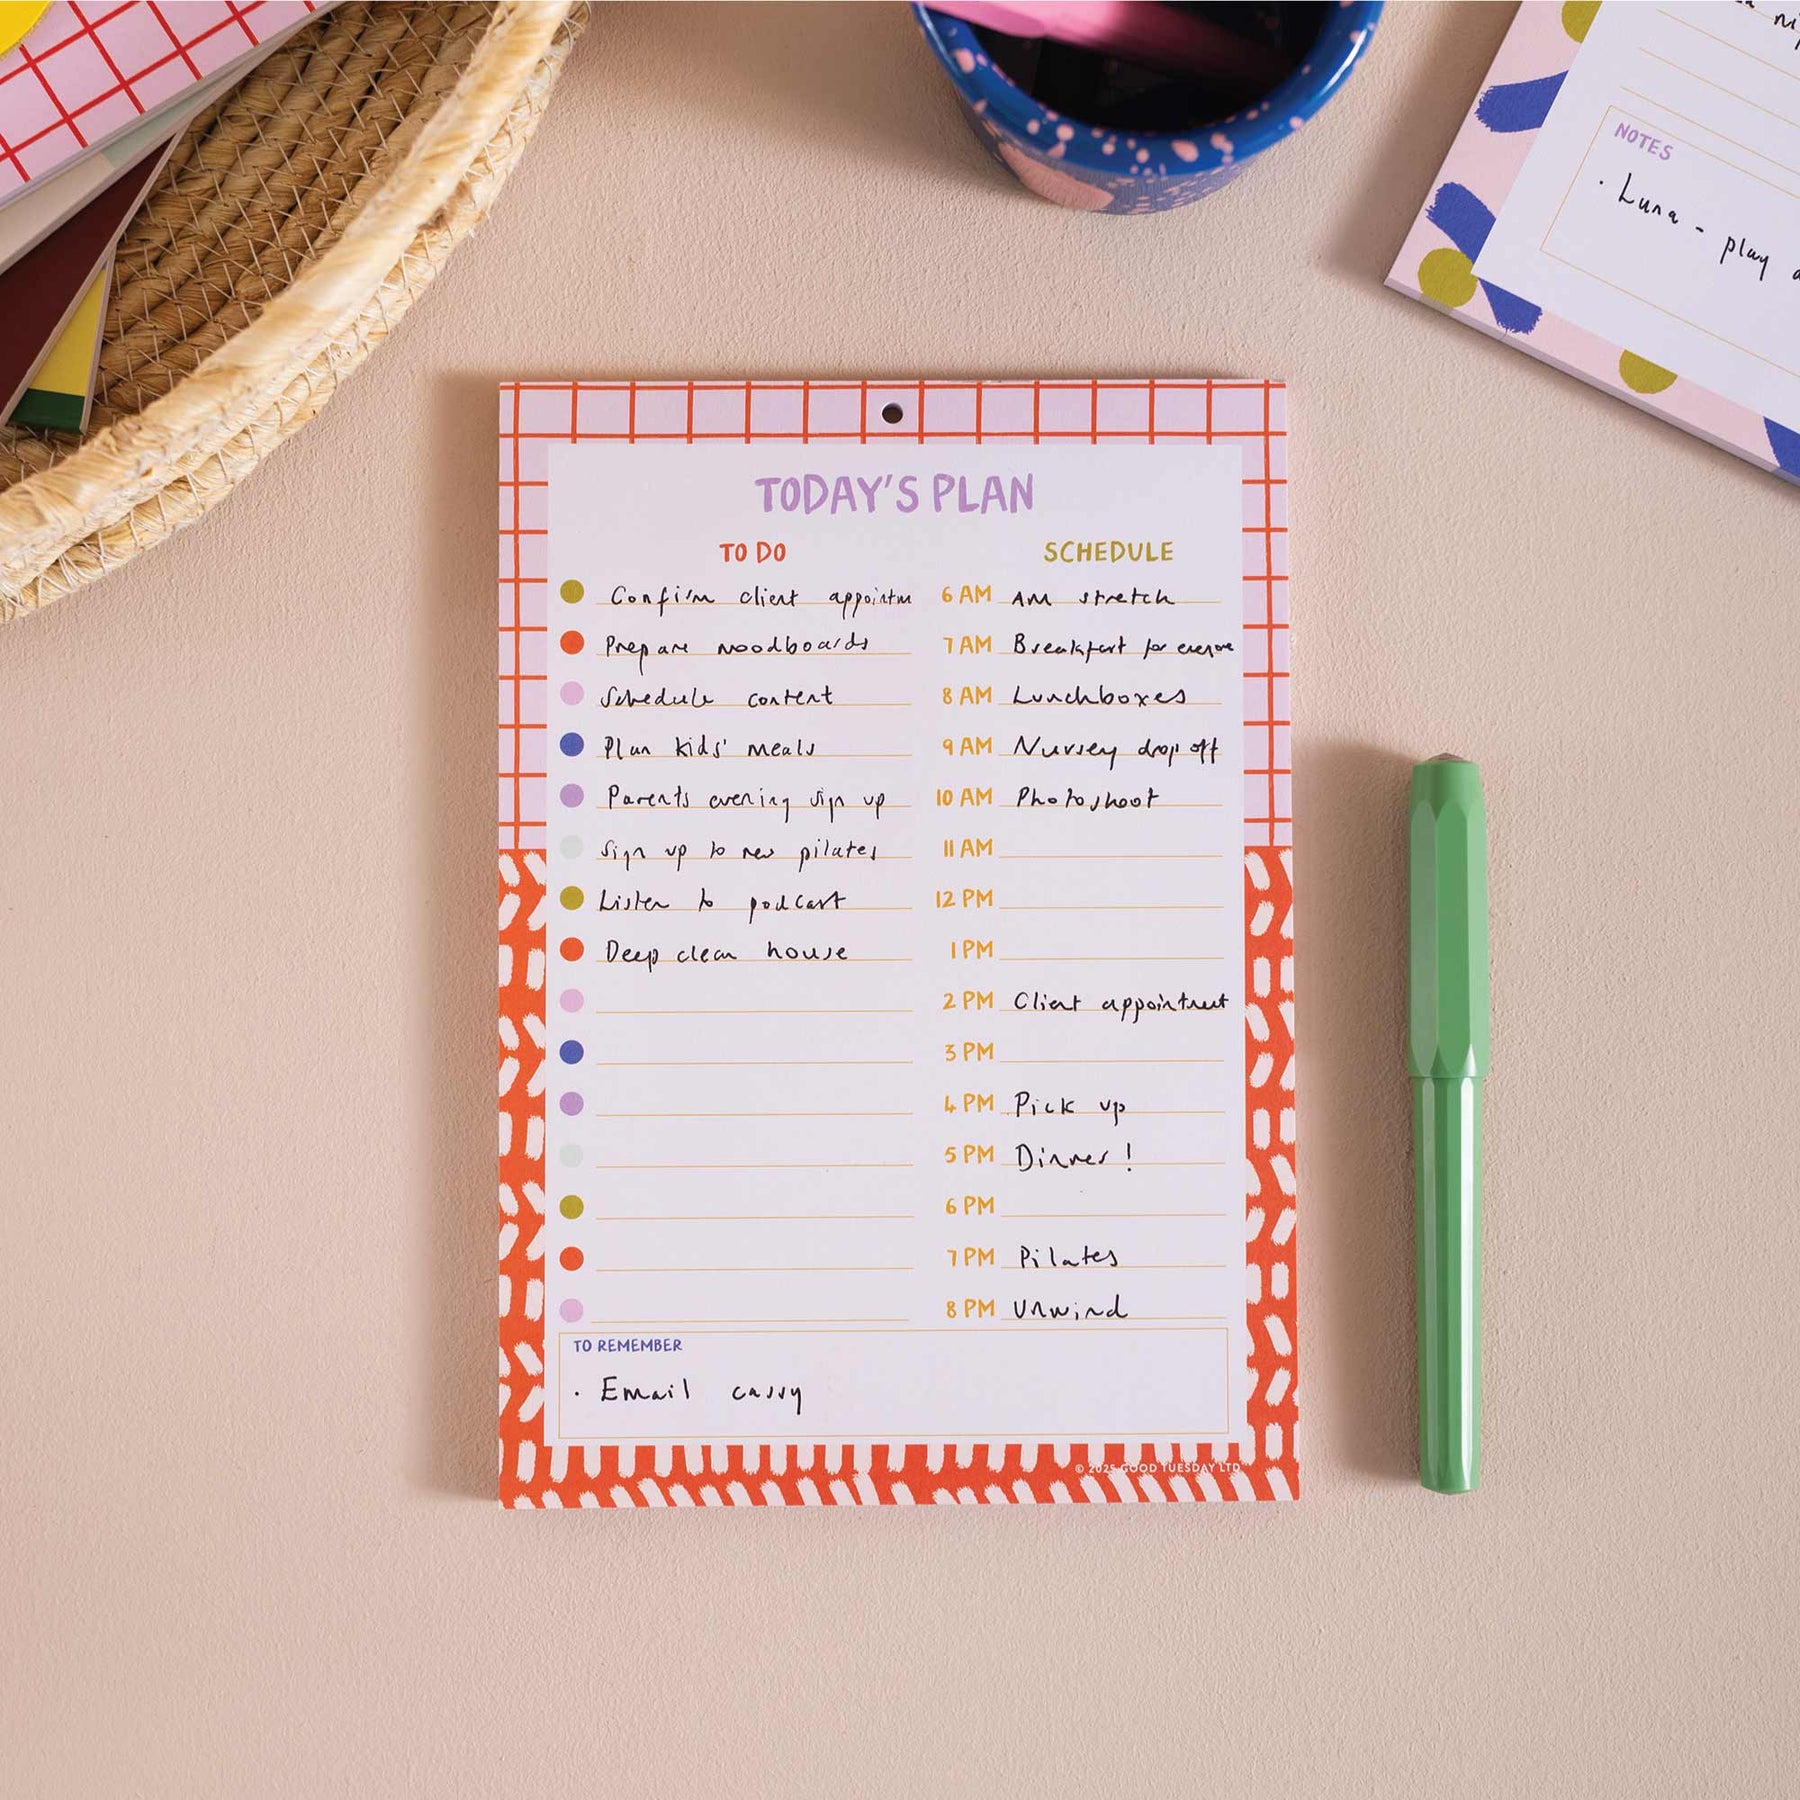 TODAY'S PLAN
TO DO
Confirm client appointm
Prepare moodboards
Schedule content
Plan kids' meals
Parents evening sign up
Sign up to new pilates
Listen to podcast
Deep clean house
SCHEDULE
6 AM AM stretch
7 AM Breakfast for everyone
8 AM Lunchboxes
9 AM Nursery drop off
10 AM Photoshoot
11 AM
12 PM
1 PM
2 PM Client appointment
3 PM
4 PM Pick up
5 PM Dinner!
6 PM
7 PM Pilates
8 PM Unwind
TO REMEMBER
· Email cassy
© 2025 GOOD TUESDAY LTD
NOTES
· Luna - play